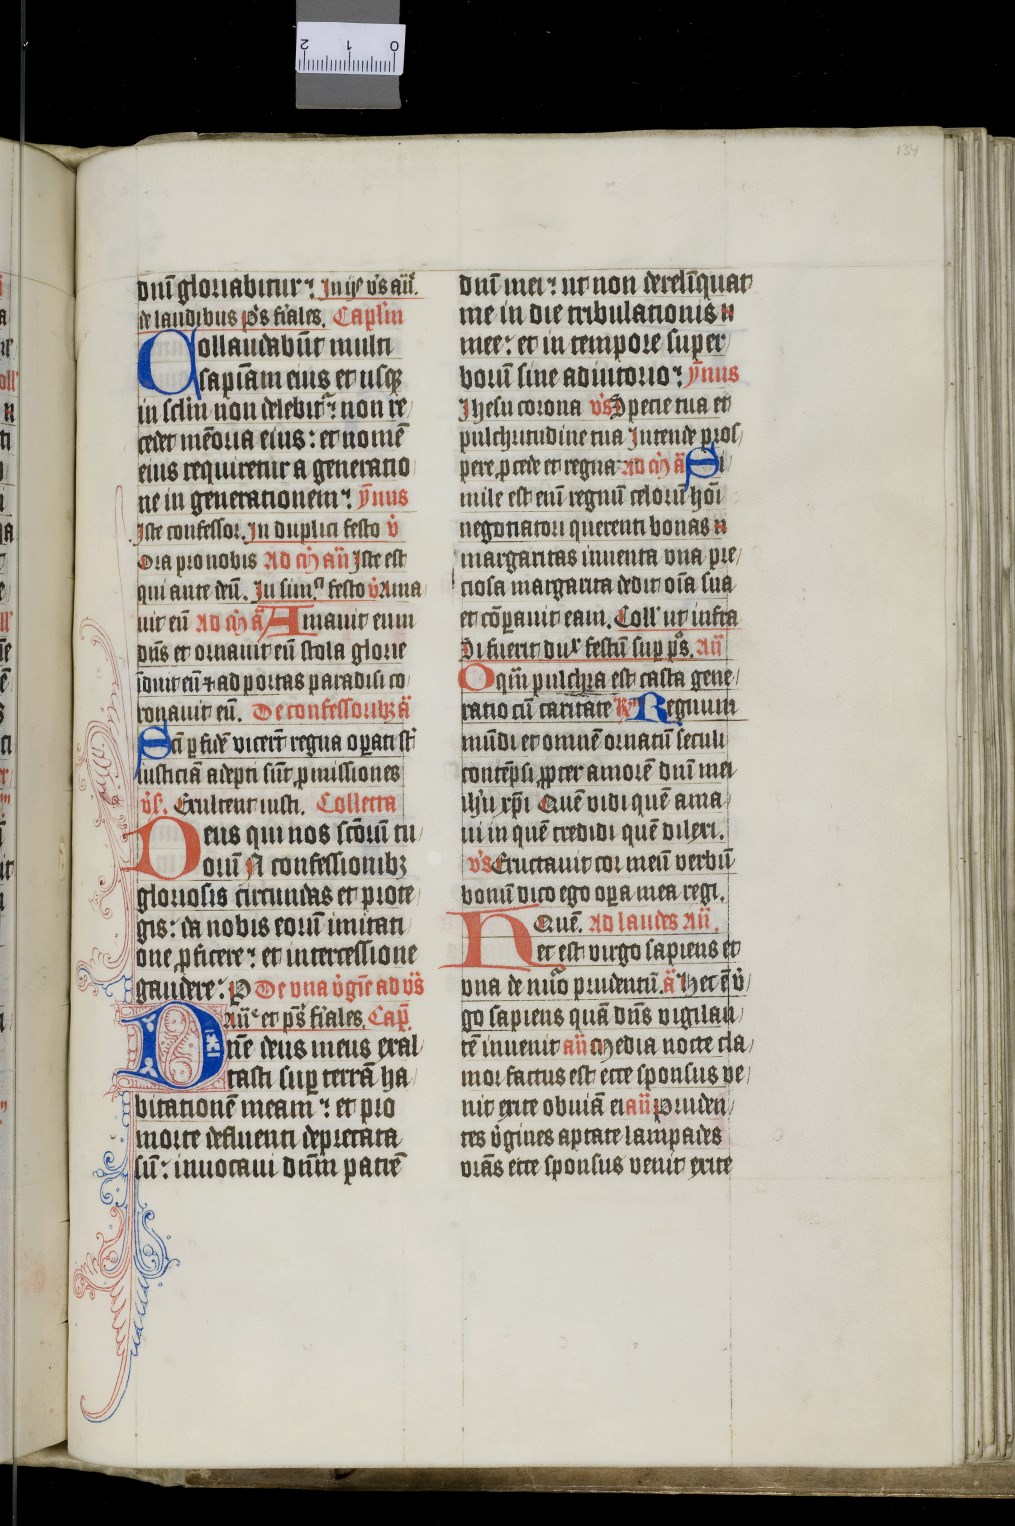 134
dnī gloriabitur: In ijs vs̄ añ.
de laudibus ps̄ fiales. Caplm
Collaudabūt multi
sapiam eius et usq
in sclm non delebit̄: non re
cedet mēoria eius: et nomē
eius requiretur a generatio
ne in generationem: ymnus
Iste confessor. In duplici festo v̄
Ora pro nobis Ad m̄ añ Iste est
qui ante deū. In simꝉ festo v̄ Ama
uit eū Ad m̄ ā Amauit eum
dn̄s et ornauit eū stola glorie
īduit eū et ad portas paradisi co
ronauit eū. De confessoribꝫ ā
Sc̄i ꝑ fidē vicert̄ regna oꝑati st̄
iusticiā adepti sūt ꝓmissiones
vs̄. Exultent iusti. Collecta
Deus qui nos sc̄oꝝ tu
orū N confessionibꝫ
gloriosis circundas et prote
gis: da nobis eorū imitati
one ꝓficere: et intercessione
gaudere: P De vna v̄gīe ad vs̄
añ et ps̄ fiales. Cap̄.
Dn̄e deus meus exal
tasti suꝑ terrā ha
bitationē meam: et pro
morte defluenti deprecata
sū: inuocaui dnm̄ patrē
dnī mei: ut non derelīquat
me in die tribulationis
mee: et in tempore super
borū sine adiutorio: ymnus
Ihesu corona vs̄ Specie tua et
pulchritudine tua Intende pros
pere ꝓcede et regna Ad m̄ ā Si
mile est enī regnū celorū hōi
negotiatori querenti bonas
margaritas inuenta vna pre
ciosa margarita dedit oīa sua
et cōparauit eam. Coll' ut infra
Si fuerit dux festū suꝑ ps̄. Añ
O q̄m pulchra est casta gene
ratio cū caritate R̄ Regnum
mūdi et omnē ornatū seculi
contēpsi ꝓpter amorē dnī mei
ihū xp̄i Quē vidi quē ama
ui in quē credidi quē dilexi.
vs̄ Eructauit cor meū verbū
bonū dico ego oꝑa mea regi.
Quē. Ad laudes Añ.
Hec est virgo sapiens et
vna de nūo prudentū. ā Hec ē v̄
go sapiens quā dn̄s vigilan
tē inuenit añ Media nocte cla
mor factus est ecce sponsus ve
nit exite obuiā ei añ Pruden
tes v̄gines aptate lampades
vrās ecce sponsus venit exite
2 1 0